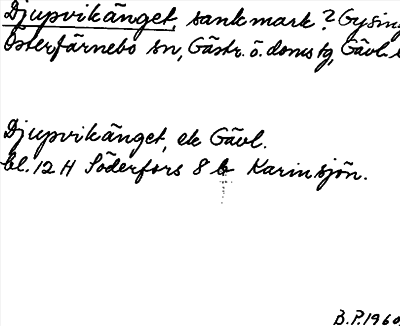 Djupvikänget, sankmark ? Gysing
Österfärnebo sn, Gästr. ö. doms tg, Gävl.
Djupvikänget, ek Gävl.
bl. 12 H Söderfors 8 b Karinsjön.
B.P. 1960